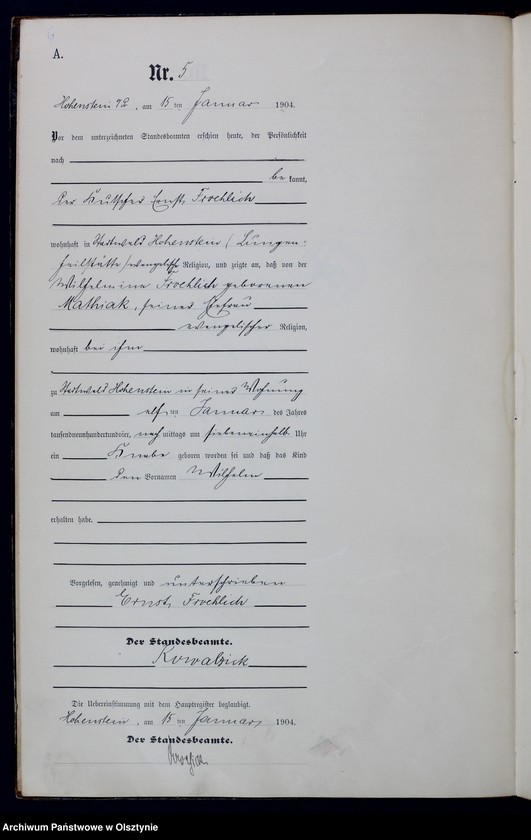 A.
Nr. 5
Hohenstein , am 15 ten Januar 1904.
Vor dem unterzeichneten Standesbeamten erschien heute, der Persönlichkeit
nach
be kannt,
der Kutscher Ernst Froehlich
wohnhaft in Stadtwald Hohenstein (Lungen-
heilstätte) evangelisch Religion, und zeigte an, daß von der
Wilhelmine Froehlich geborenen
Mathiak, seiner Ehefrau
evangelischer Religion,
wohnhaft bei ihm
zu Stadtwald Hohenstein in seiner Wohnung
am elf ten Januar des Jahres
tausendneunhundertundvier, nach mittags um siebeneinhalb Uhr
ein Knabe geboren worden sei und daß das Kind
den Vornamen Wilhelm
erhalten habe.
Vorgelesen, genehmigt und unterschrieben
Ernst Froehlich
Der Standesbeamte.
Kowalzick
Die Uebereinstimmung mit dem Hauptregister beglaubigt.
Hohenstein , am 15 ten Januar 1904.
Der Standesbeamte.
Archiwum Państwowe w Olsztynie